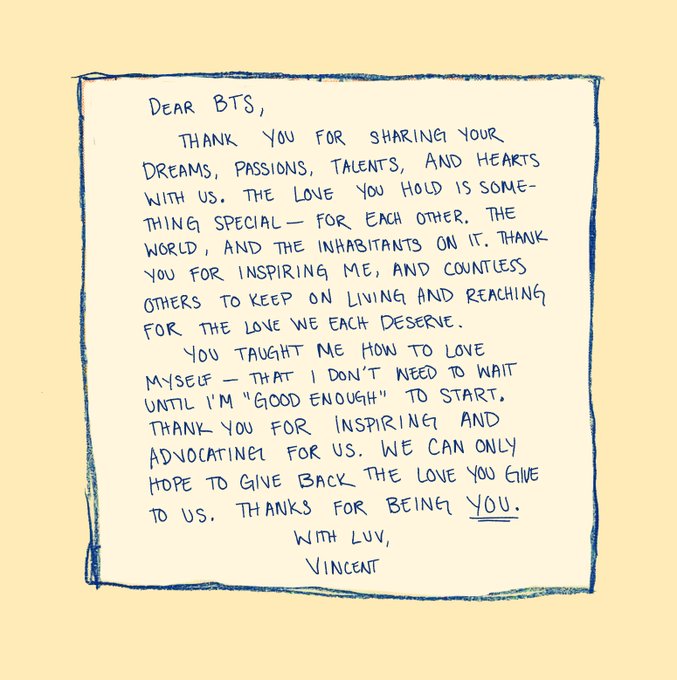 DEAR BTS,
THANK YOU FOR SHARING YOUR
DREAMS, PASSIONS, TALENTS, AND HEARTS
WITH US. THE LOVE YOU HOLD IS SOME-
THING SPECIAL — FOR EACH OTHER. THE
WORLD, AND THE INHABITANTS ON IT. THANK
YOU FOR INSPIRING ME, AND COUNTLESS
OTHERS TO KEEP ON LIVING AND REACHING
FOR THE LOVE WE EACH DESERVE.
YOU TAUGHT ME HOW TO LOVE
MYSELF — THAT I DON'T NEED TO WAIT
UNTIL I'M "GOOD ENOUGH" TO START.
THANK YOU FOR INSPIRING AND
ADVOCATING FOR US. WE CAN ONLY
HOPE TO GIVE BACK THE LOVE YOU GIVE
TO US. THANKS FOR BEING YOU.
WITH LUV,
VINCENT